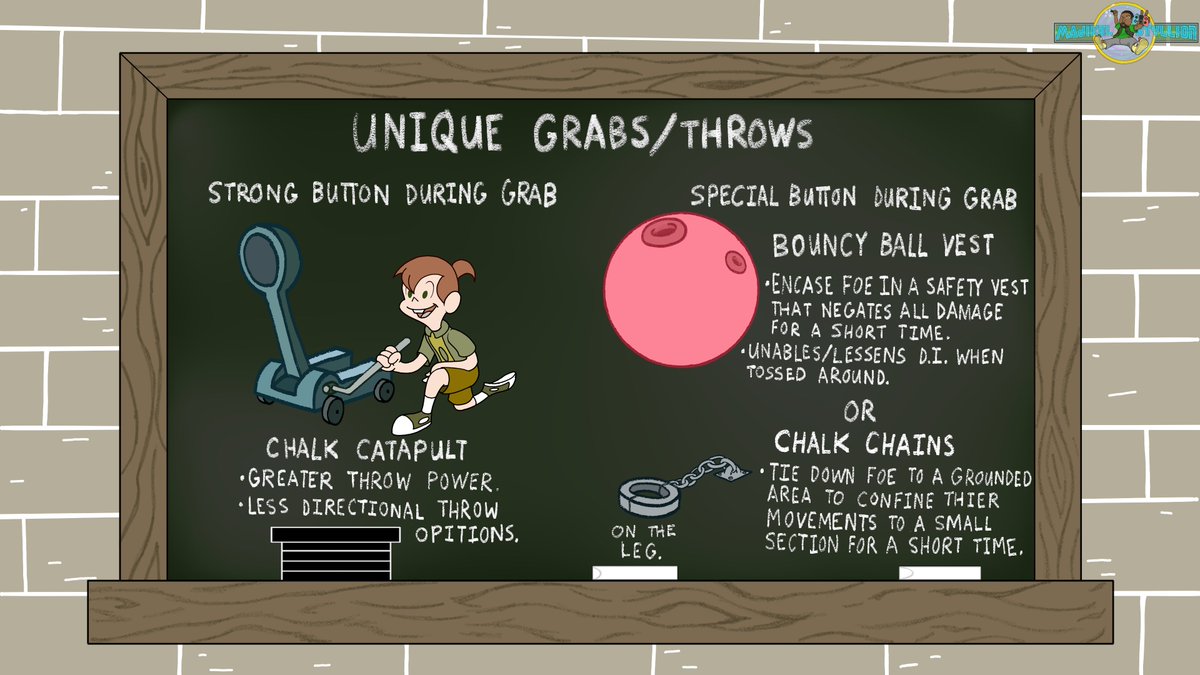 UNIQUE GRABS/THROWS
STRONG BUTTON DURING GRAB
CHALK CATAPULT
•GREATER THROW POWER.
•LESS DIRECTIONAL THROW
OPITIONS.
SPECIAL BUTTON DURING GRAB
BOUNCY BALL VEST
•ENCASE FOE IN A SAFETY VEST
THAT NEGATES ALL DAMAGE
FOR A SHORT TIME.
•UNABLES/LESSENS D.I. WHEN
TOSSED AROUND.
OR
CHALK CHAINS
•TIE DOWN FOE TO A GROUNDED
AREA TO CONFINE THIER
MOVEMENTS TO A SMALL
SECTION FOR A SHORT TIME.
ON THE
LEG.